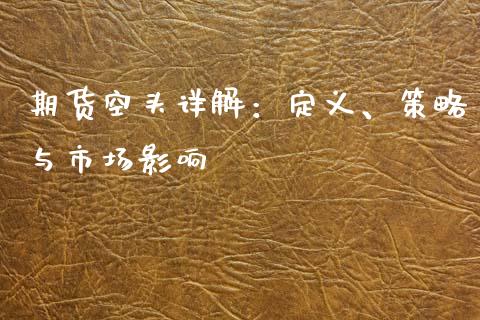 期货空头详解：定义、策略
与市场影响